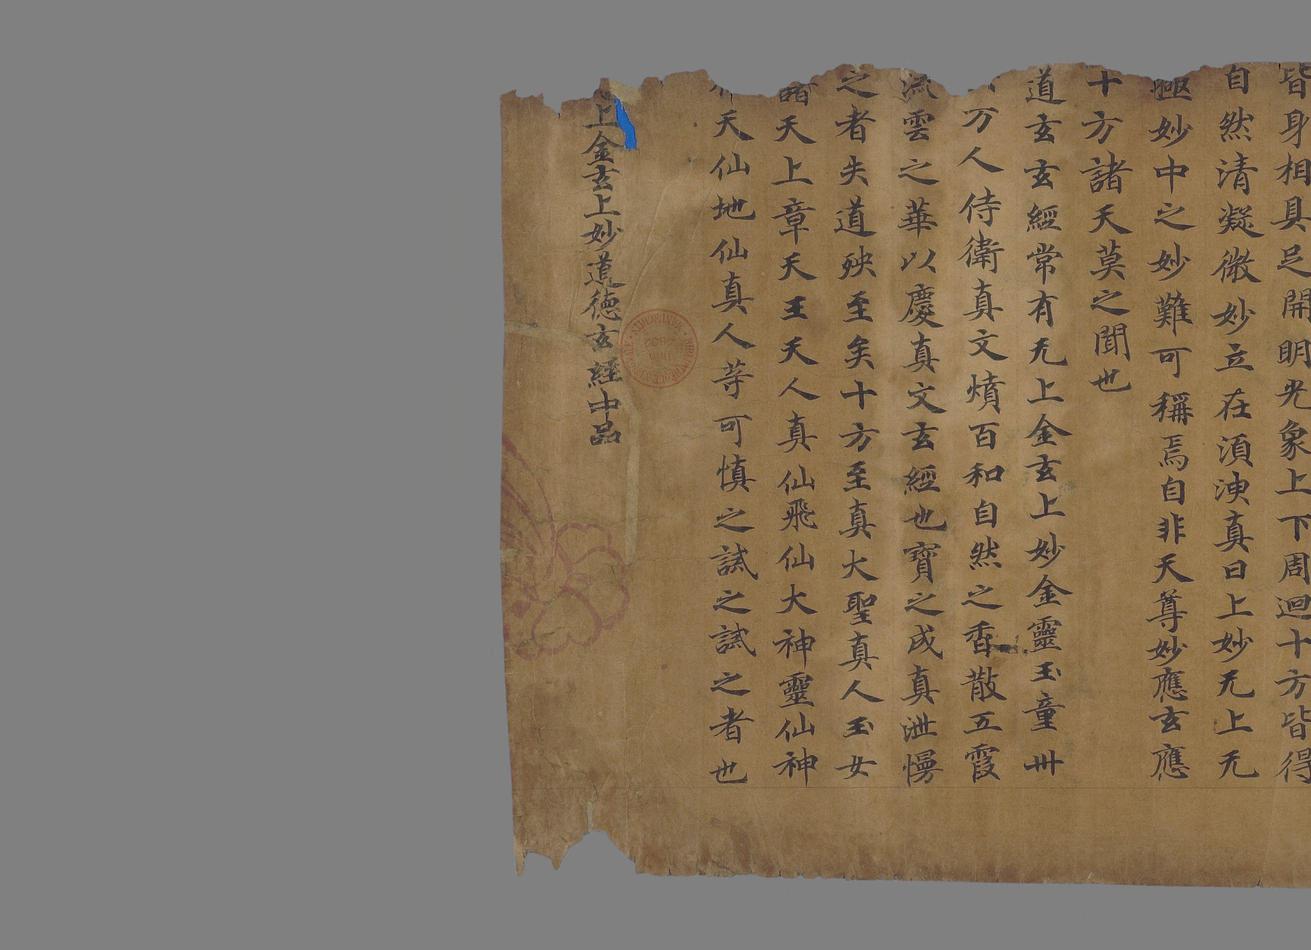 皆身相具足開明光象上下周迴十方皆得
自然清凝微妙立在澒洞真曰上妙无上无
極妙中之妙難可稱焉自非天尊妙應玄應
十方諸天莫之聞也
道玄玄經常有无上金玄上妙金靈玉童卅
万人侍衛真文燌百和自然之香散五霞
流雲之華以慶真文玄經也寶之成真泄慢
之者失道殃至矣十方至真大聖真人玉女
諸天上章天王天人真仙飛仙大神靈仙神
天仙地仙真人等可慎之誡之誡之者也
上金玄上妙道德玄經中品